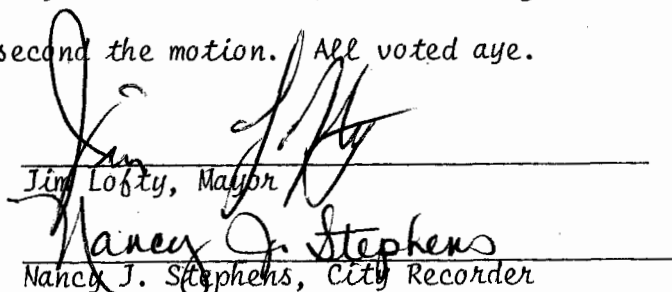 second the motion. All voted aye.
Jim Lofty
Jim Lofty, Mayor
Nancy J. Stephens
Nancy J. Stephens, City Recorder